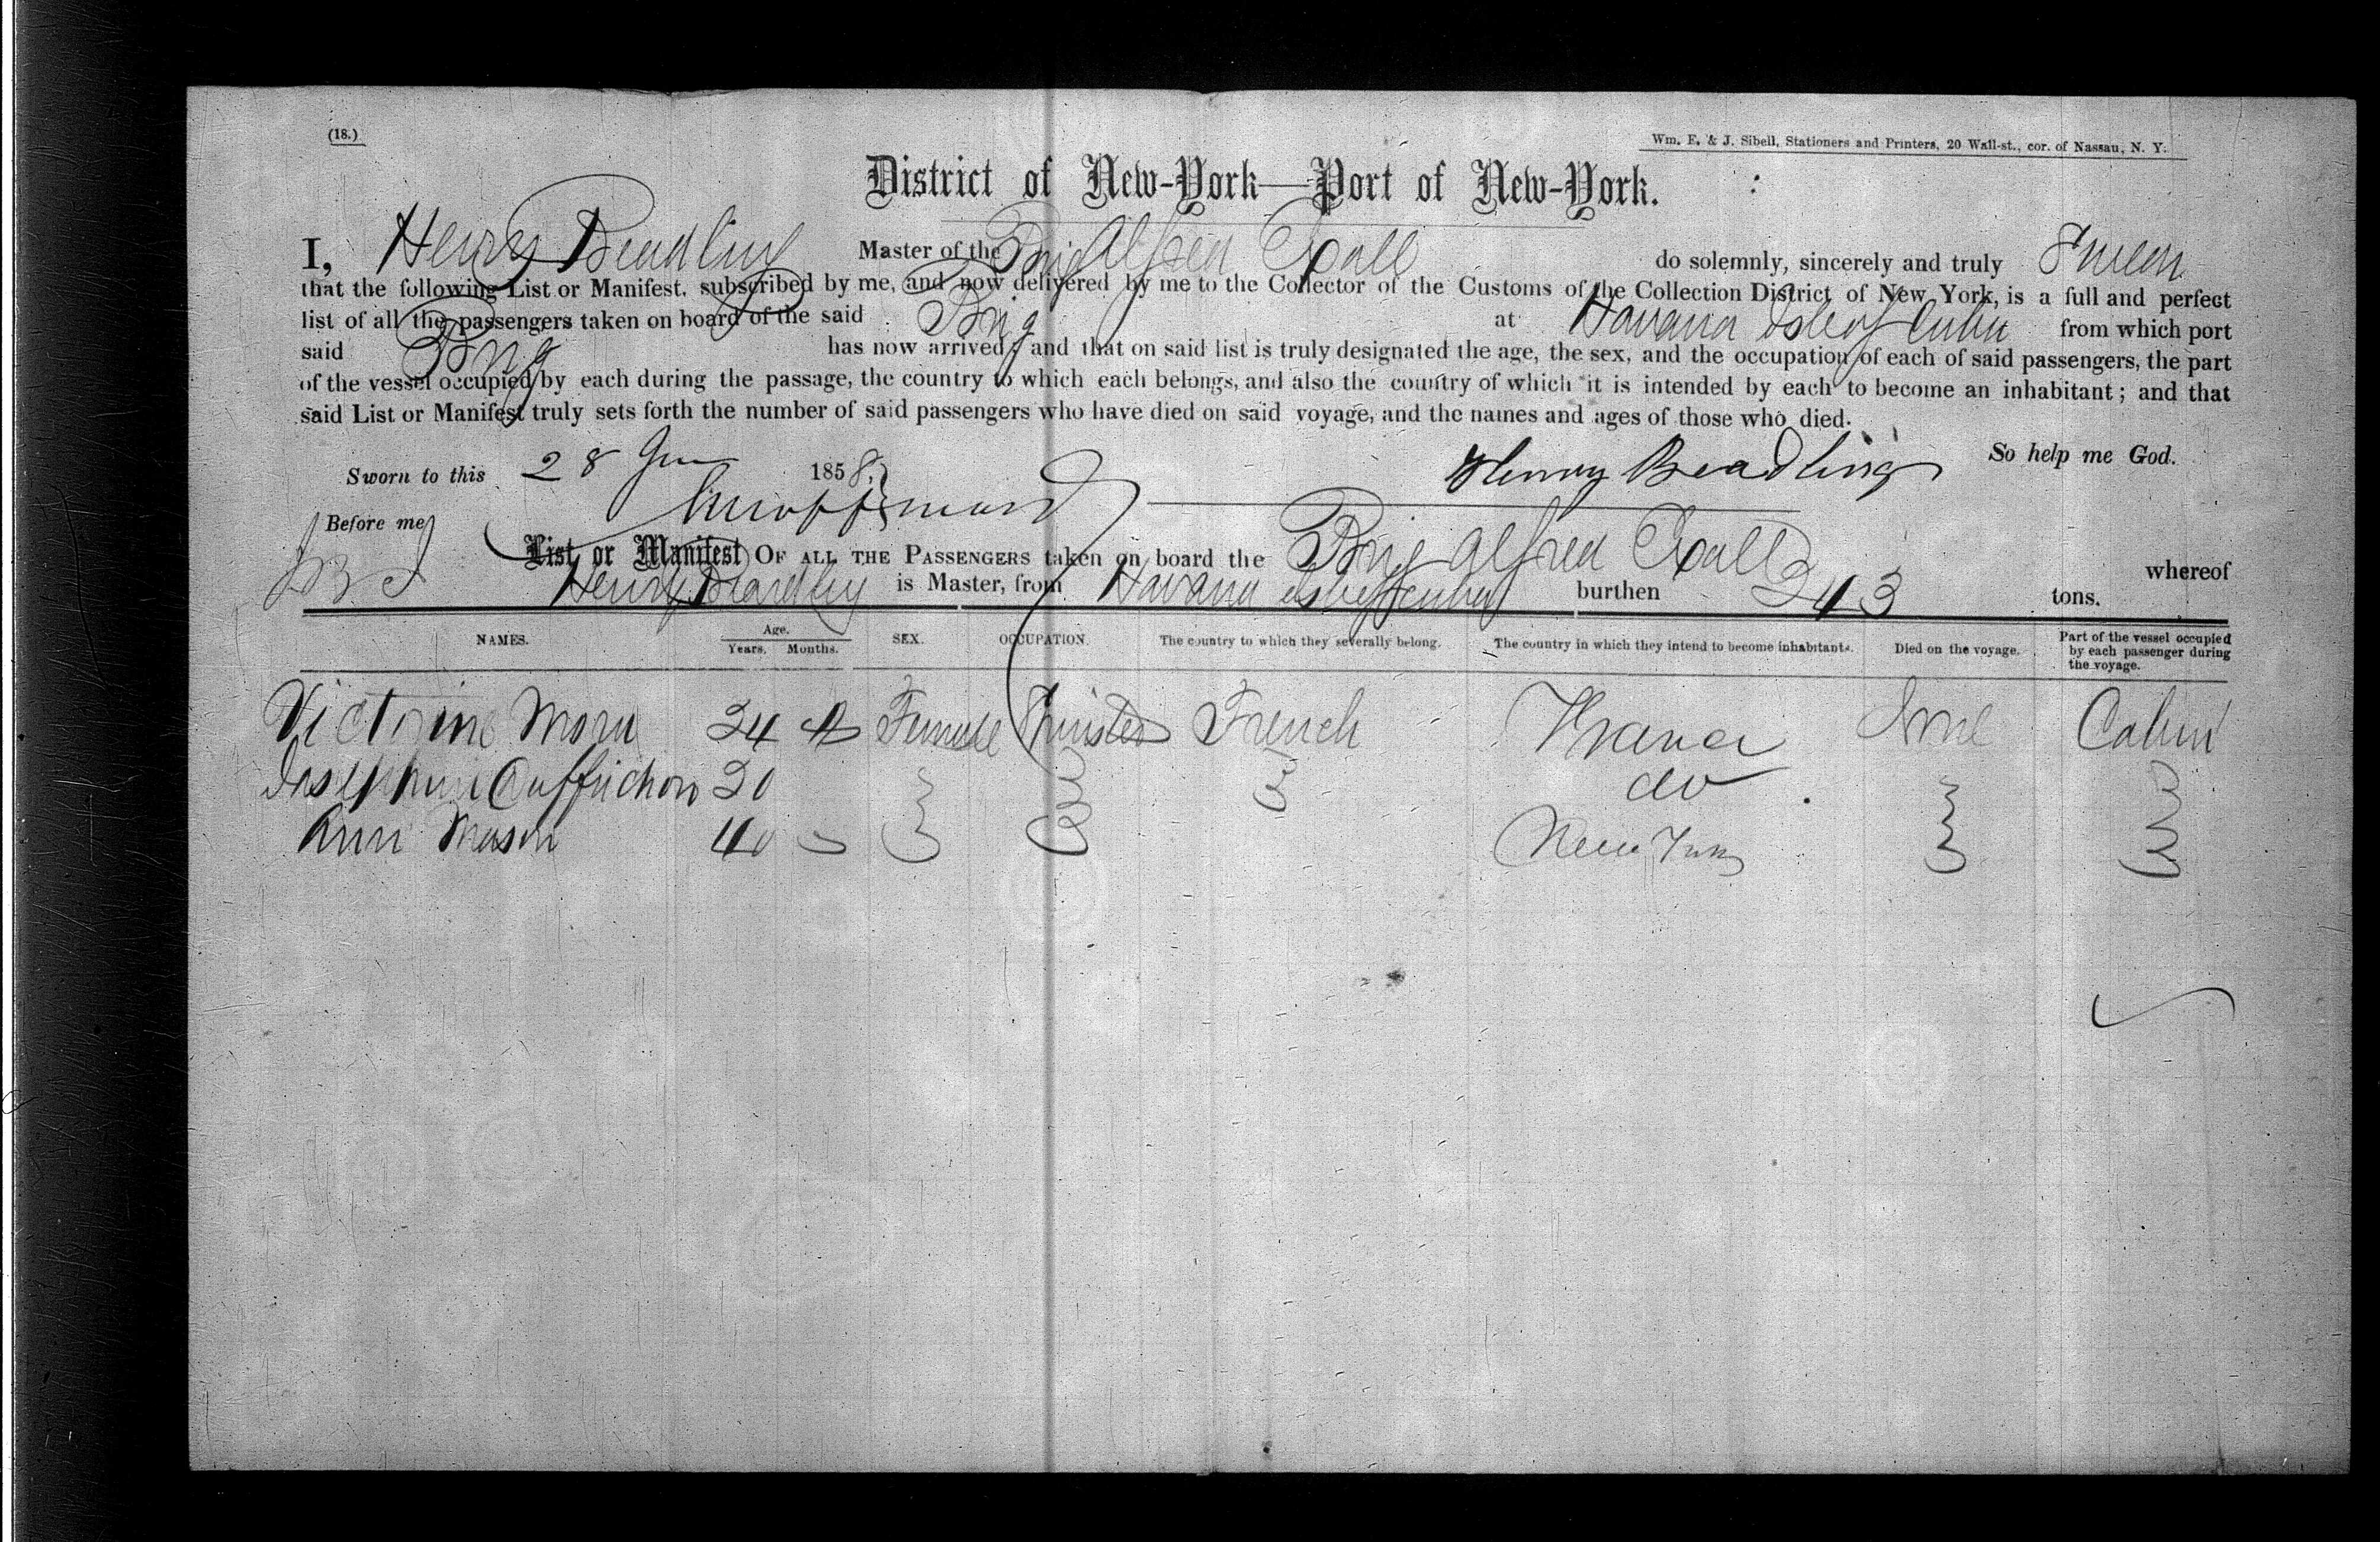 (18.)
Wm. E. & J. Sibell, Stationers and Printers, 20 Wall-st., cor. of Nassau, N. Y.
District of New-York—Port of New-York.
I, Henry Beadling Master of the Brig Alfred Exall do solemnly, sincerely and truly Swear
that the following List or Manifest, subscribed by me, and now delivered by me to the Collector of the Customs of the Collection District of New York, is a full and perfect
list of all the passengers taken on board of the said Brig at Havana Isle of Cuba from which port
said Brig has now arrived; and that on said list is truly designated the age, the sex, and the occupation of each of said passengers, the part
of the vessel occupied by each during the passage, the country to which each belongs, and also the country of which it is intended by each to become an inhabitant; and that
said List or Manifest truly sets forth the number of said passengers who have died on said voyage, and the names and ages of those who died.
So help me God.
Sworn to this 28 1858 Henry Beadling
Before me
List or Manifest OF ALL THE PASSENGERS taken on board the Brig Alfred Exall whereof
Henry Beadling is Master, from Havana Isle of Cuba burthen 243 tons.
NAMES. Age. Years. Months. SEX. OCCUPATION. The country to which they severally belong. The country in which they intend to become inhabitants. Died on the voyage. Part of the vessel occupied by each passenger during the voyage.
Victorine 24 Female French France None Cabin
Josephine 20 do
Ann Mason 40 New York